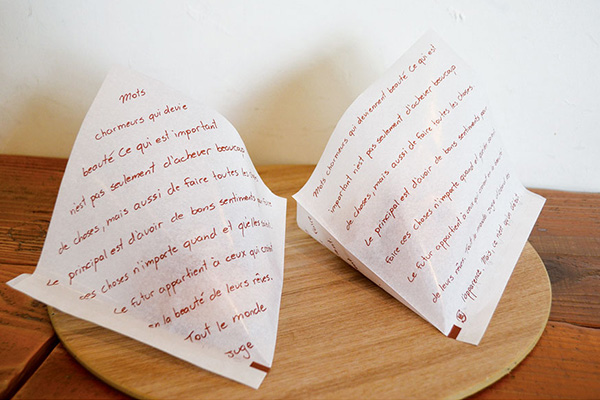 Mots
charmeurs qui devie
beauté Ce qui est important
n'est pas seulement d'achever beaucoup
de choses, mais aussi de faire toutes les
Le principal est d'avoir de bons sentiments
ces choses n'importe quand et qu'elles
Le Futur appartient à ceux qui croient
en la beauté de leurs rêves.
Tout le monde
juge
Mots charmeurs qui deviennent beauté Ce qui est
important n'est pas seulement d'achever beaucoup
de choses, mais aussi de faire toutes les choses
Le principal est d'avoir de bons sentiments pour
Faire ces choses n'importe quand et
Le Futur appartient à ceux qui croient en la beauté
de leurs rêves. Tout le monde juge d'après
l'apparence. Mais, ce n'est qu'un